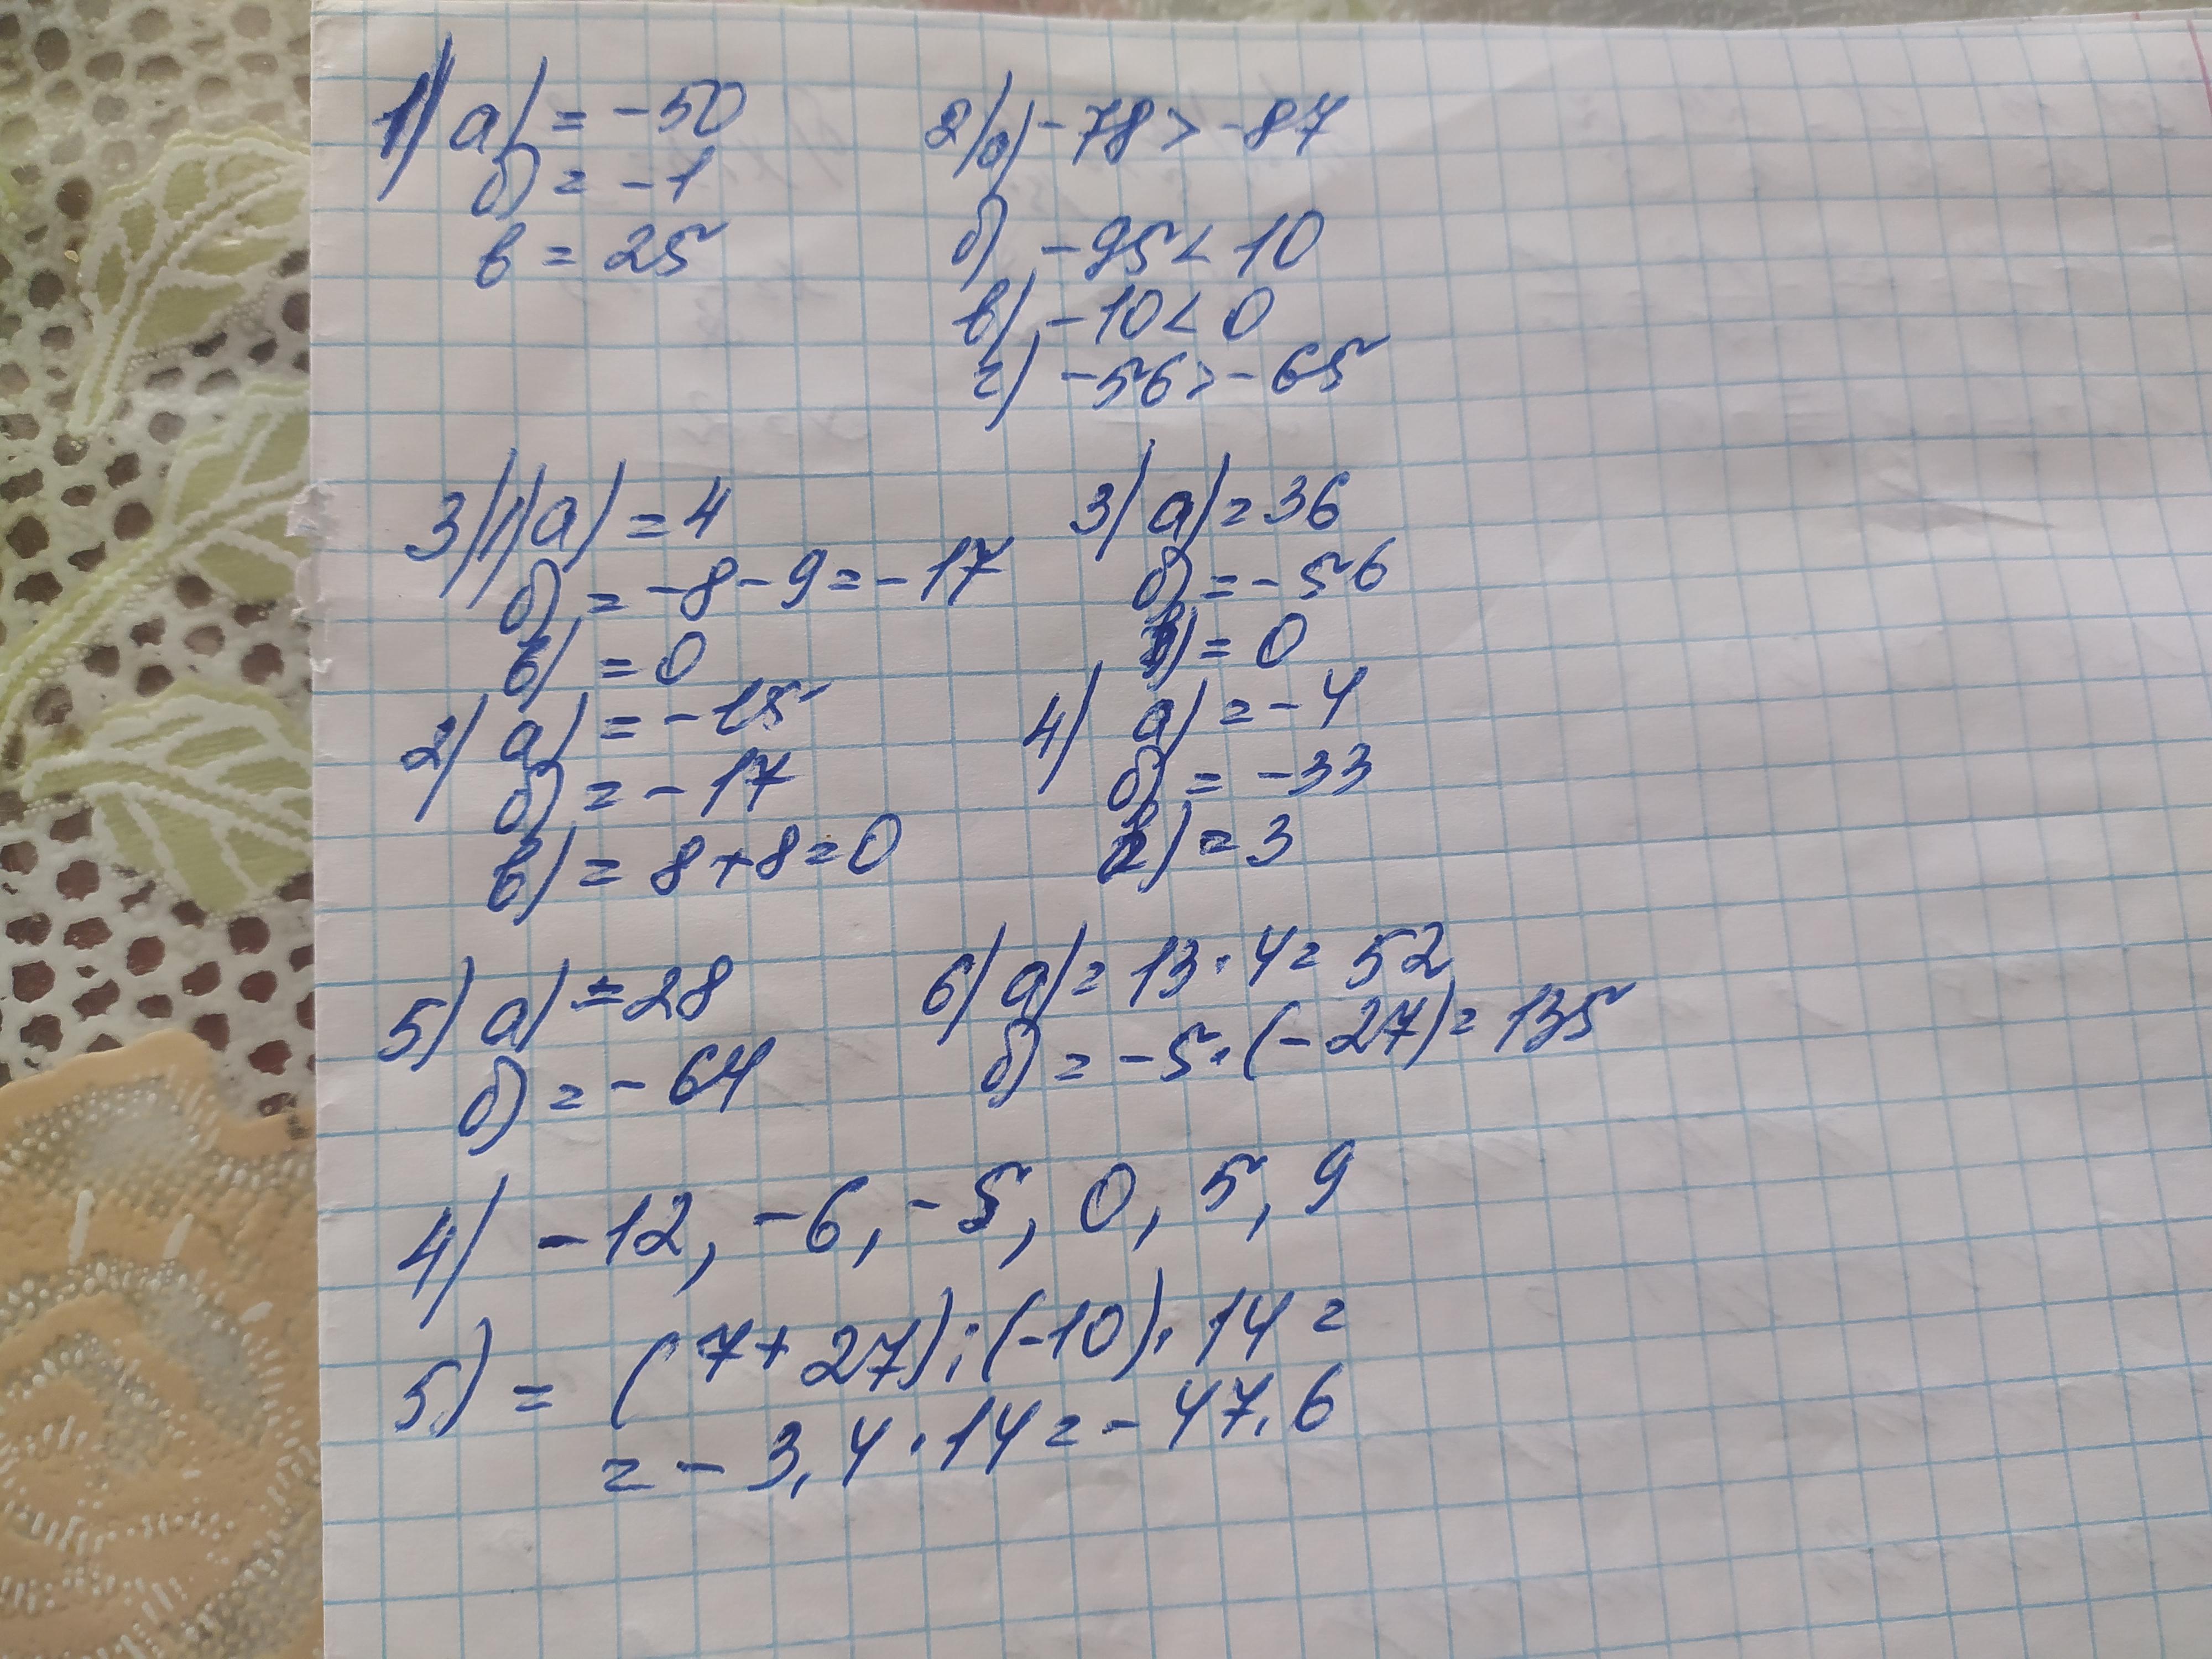 1) а) = -50
б) = -1
в = 25
2) а) -78 > -87
б) -95 < 10
в) -10 < 0
г) -56 > -65
3) 1) а) = 4
б) = -8 - 9 = -17
в) = 0
2) а) = -15
б) = -17
в) = 8 + 8 = 0
3) а) = 36
б) = -56
в) = 0
4) а) = -4
б) = -33
в) = 3
5) а) = 28
б) = -64
6) а) = 13 · 4 = 52
б) = -5 · (-27) = 135
4) -12, -6, -5, 0, 5, 9
5) = (7 + 27) : (-10) · 14 =
= -3,4 · 14 = -47,6